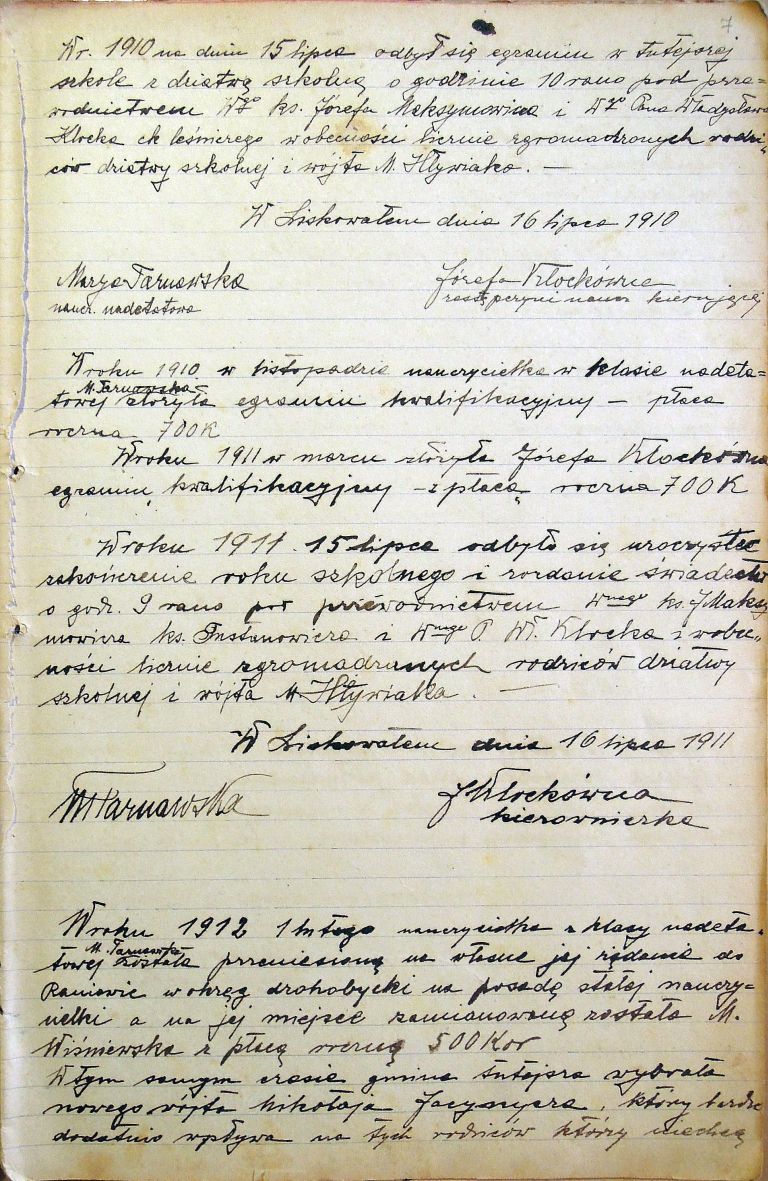 7
Wr. 1910 na dniu 15 lipca odbył się egzamin w tutejszej
szkole z dziatwą szkolną o godzinie 10 rano pod prze=
wodnictwem Wgo ks. Józefa Maksymowicza i Wgo Pana Władysława
Klocka ck leśniczego w obecności licznie zgromadzonych rodzi„
ców dziatwy szkolnej i wójta M. Hływiaka. —
W Liskowatem dnia 16 lipca 1910
Marya Tarnawska
naucz. nadetatowa
Józefa Klockówna
zastępczyni naucz kierującej
W roku 1910 w listopadzie nauczycielka w klasie nadeta=
M. Tarnawska
towej złożyła egzamin kwalifikacyjny — płaca
roczna 700 K
W roku 1911 w marcu złożyła Józefa Klockówna
egzamin kwalifikacyjny — z płacą roczna 700 K
W roku 1911 15 lipca odbyło się uroczyste
zakończenie roku szkolnego i rozdanie świadectw
o godz. 9 rano pod przewodnictwem Wnego ks. J Maksy
mowicza ks. i Wnego P Wł. Klocka i w obec„
ności licznie zgromadzonych rodziców dziatwy
szkolnej i wójta M. Hływiaka. —
W Liskowatem dnia 16 lipca 1911
M Tarnawska
J Klockówna
kierowniczka
W roku 1912 1 lutego nauczycielka z klasy nadeta=
M. Tarnawska
towej została przeniesioną na własne jej żądanie do
Raniowic w okręg drohobycki na posadę stałej nauczy=
cielki a na jej miejsce zamianowaną została M.
Wiśniewska z płacą roczną 500 Kor
W tym samym czasie gmina tutejsza wybrała
nowego wójta Mikołaja który bardzo
dodatnio wpływa na tych rodziców którzy niechcą